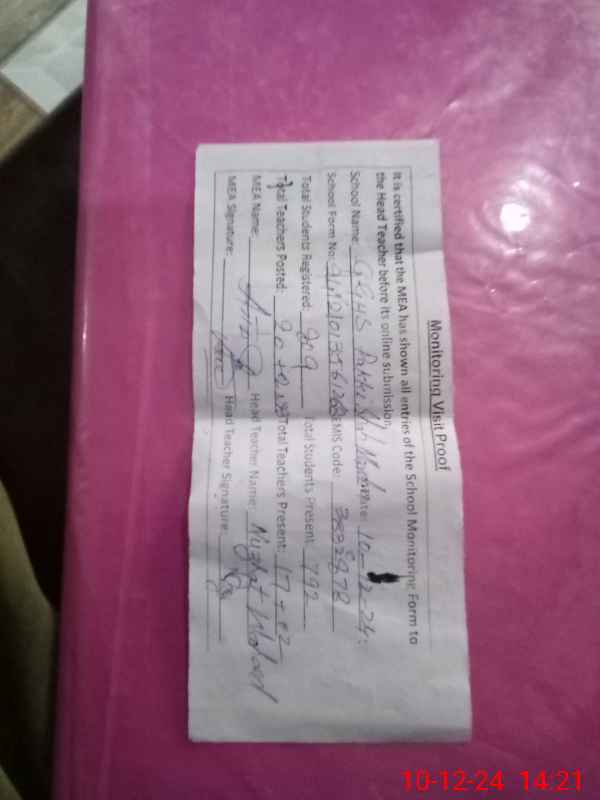 Monitoring Visit Proof
It is certified that the MEA has shown all entries of the School Monitoring Form to
the Head Teacher before its online submission.
School Name: GGHS Date: 10-12-24
School Form No: EMIS Code:
Total Students Registered: 829 Total Students Present: 792
Total Teachers Posted: Total Teachers Present: 17+02
MEA Name: Head Teacher Name: Nuzhat
MEA Signature: Head Teacher Signature:
10-12-24 14:21